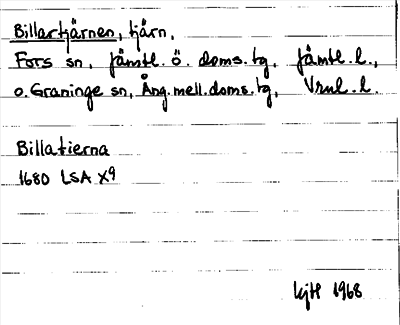 Billartjärnen, tjärn,
Fors sn, Jämtl. ö. doms. tg, Jämtl. l.,
o. Graninge sn, Ång. mell. doms. tg, Vrnl. l.
Billatierna
1680 LSA X9
1968